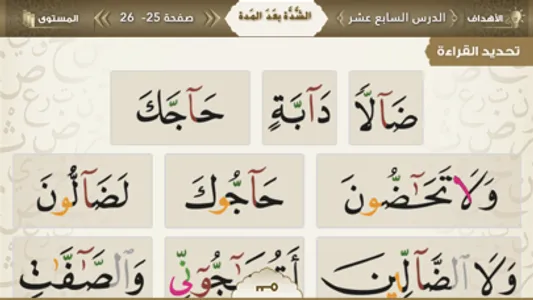 الأهداف الدرس السابع عشر الشَّدَّة بعْدَ المَدة صفحة 25- 26 المستوى
تحديد القراءة
ضَآلًّا دَآبَّةٍ حَآجَّكَ
وَلَا تَحَٰٓضُّونَ حَآجُّوكَ لَضَآلُّونَ
وَلَا ٱلضَّآلِّينَ أَتُحَٰٓجُّوٓنِّي وَٱلصَّٰٓفَّٰتِ